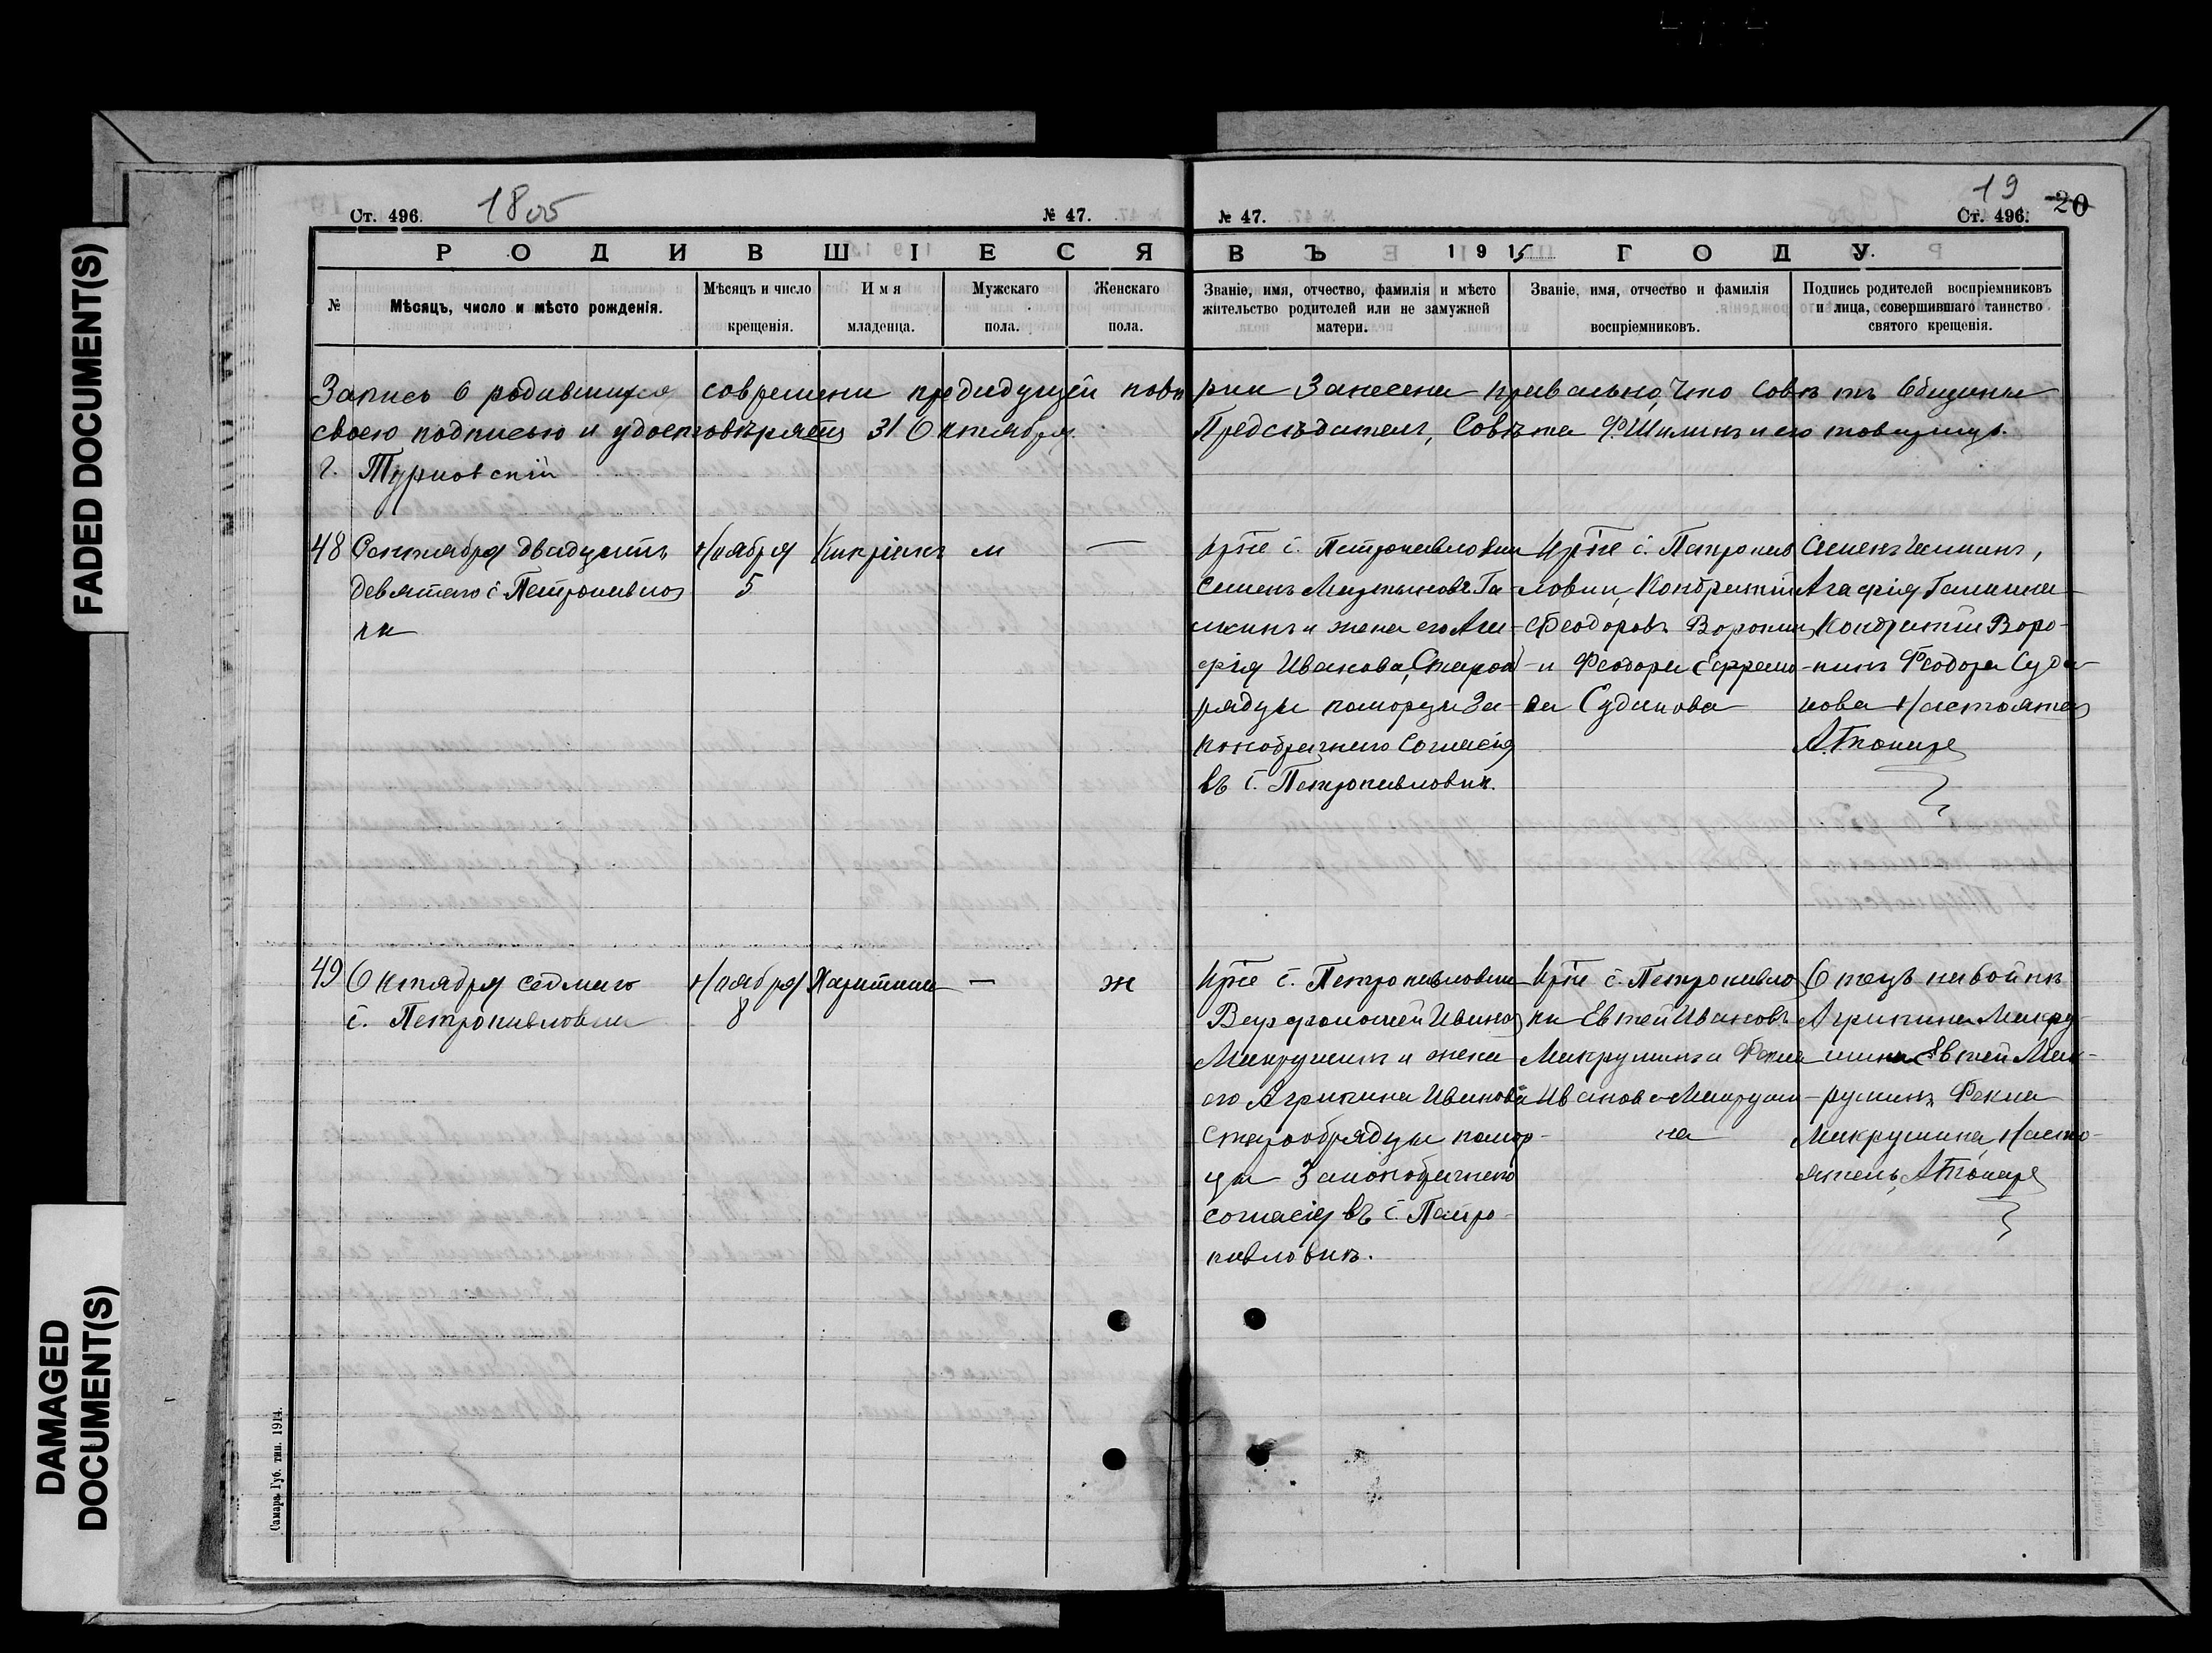 FADED DOCUMENT(S)
DAMAGED
DOCUMENT(S)
Ст. 496.
1805
№ 47.
РОДИВШІЕСЯ
№
Мѣсяцъ, число и мѣсто рожденія.
Мѣсяцъ и число
крещенія.
Имя
младенца.
Мужскаго
пола.
Женскаго
пола.
№ 47.
19
Ст. 496.
20
ВЪ 1915 ГОДУ.
Званіе, имя, отчество, фамилія и мѣсто
жительство родителей или не замужней
матери.
Званіе, имя, отчество и фамилія
воспріемниковъ.
Подпись родителей воспріемниковъ
и лица, совершившаго таинство
святого крещенія.
Запись о родившихся современи предидущей повѣ рки Занесена правельно, что Совѣтъ Общины
своею подписью и удостовѣряетъ 31 Октября. Председатель, Совѣта Ф. Шилинъ и его товарищъ.
г. Турковскій
48
Сентября двадцать
девятаго с. Петропавлов
ки
Ноября
5
м
—
Кр̃не с. Петропавловки
Семенъ Мартыновъ Га-
шкинъ и жена его Ага-
фія Иванова, Старооб
рядцы поморцы За-
конобрачнаго Согласія
въ с. Петропавловкѣ.
Кр̃не с. Петропав
ловки, Кондратій
Феодоровъ Воронин
и Феодора Ефремо-
ва Суданова
Семенъ Гашкинъ,
Агафія Гашкина
Кондратій Воро-
нинъ Феодора Суда-
нова Настоятел
49
Октября седмаго
с. Петропавловки
Ноября
8
Харитина
—
ж
Кр̃не с. Петропавловки
Варфоломей Иванов
Макрушинъ и жена
его Агрипина Иванова
Старообрядцы помор-
цы Законобрачнаго
согласія въ с. Петро-
павловкѣ.
Кр̃не с. Петропавлов
ки Евтей Ивановъ
Макрушинъ и Фекла
Иванова Макруши-
на
Отецъ на войнѣ
Агрипина Макру
шина Евтей Мак-
рушинъ Фекла
Макрушина, Насто-
ятель,
Самара. Губ. тип. 1914.